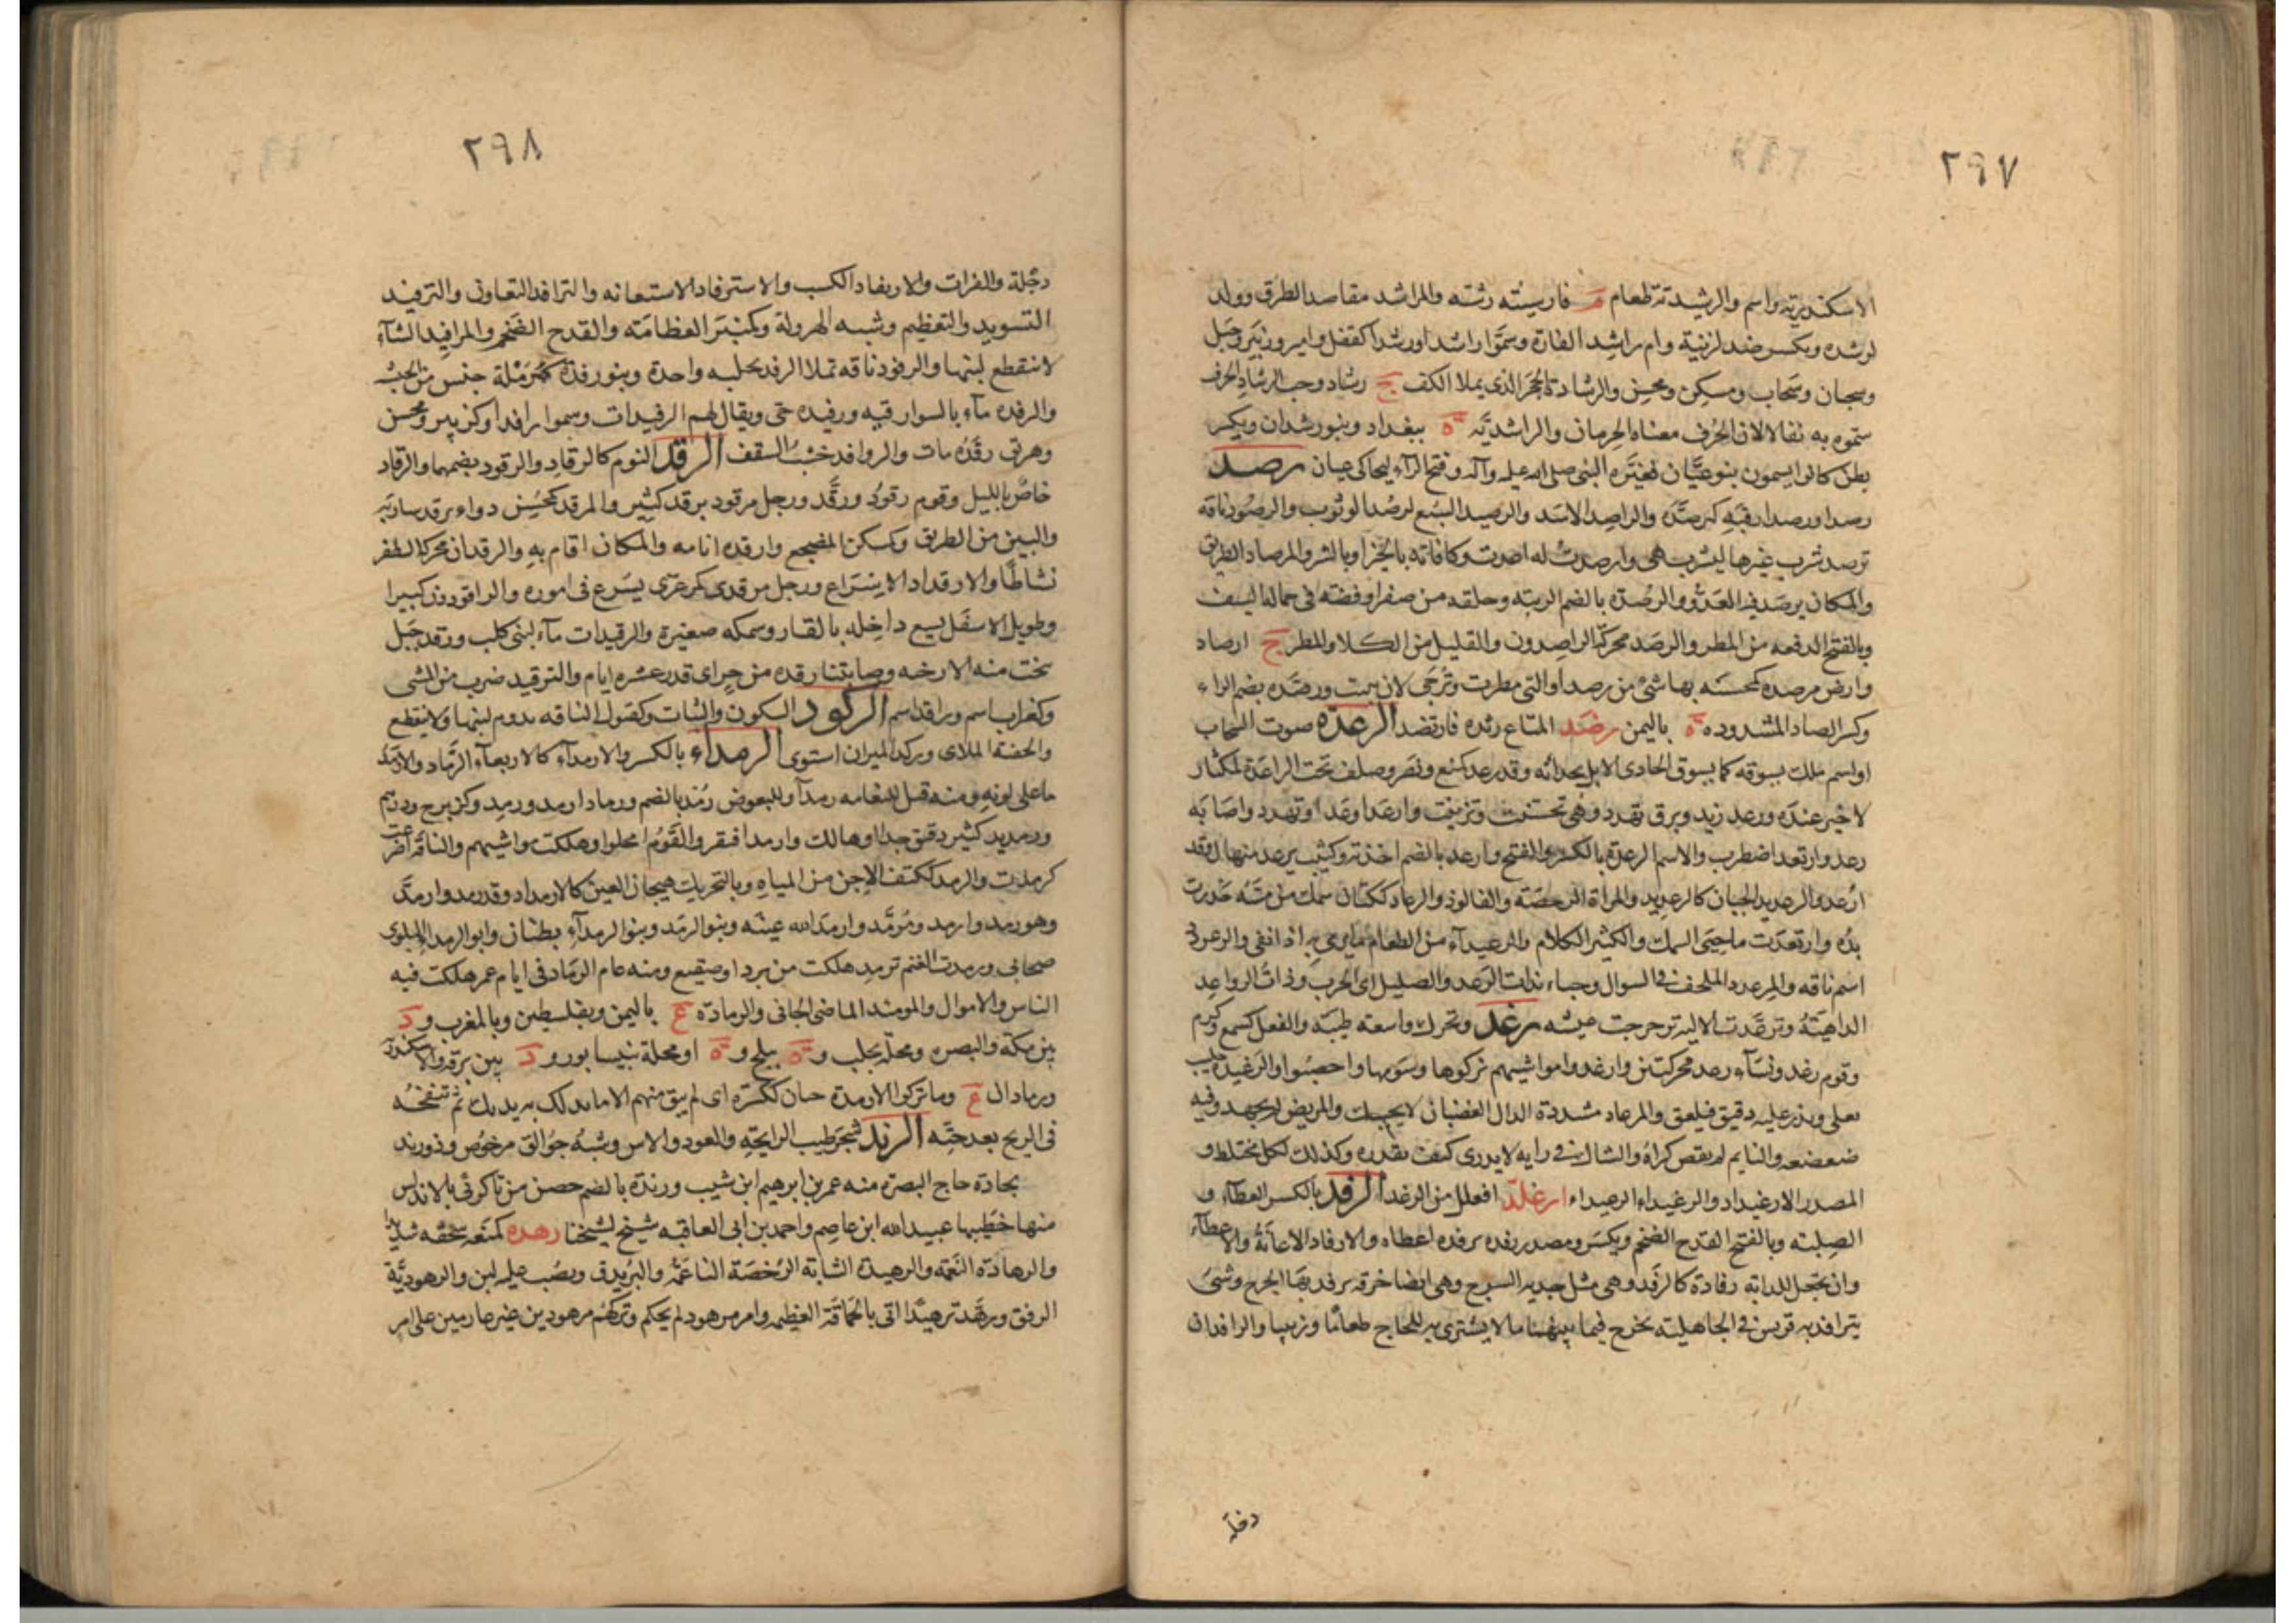 ٢٩٧
الاسكندرية واسم والرشيدية طعام م فارسيته رشته والمراشد مقاصد الطرق وولد
لرشده ويكسر ضد لزنية وام راشد الفارة وسموا راشدا ورشدا كقفل وامير وزبير وجبل
وسحبان وسحاب ومسكين ومحسن والرشادة الحجر الذي يملا الكف ج رشاد وحب الرشاد الحرف
سموه به تفالا لان الحرف معناه الحرمان والراشدية ة ببغداد وبنو رشدان ويكسر
بطن كانوا يسمون بنو غيان فغيره النبي صلى الله عليه وآله وفتح الراء ليحاكي غيان رصد
رصدا ورصدا رقبه كترصده والراصد الاسد والرصيد السبع يرصد الوثوب والرصود ناقة
ترصد شرب غيرها لتشرب هي وارصدت له اعددت وكافاته بالخير او بالشر والمرصاد الطريق
والمكان يرصد فيه العدو والرصدة بالضم الزبية وحلقة من صفر او فضة في حمالة السيف
وبالفتح الدفعة من المطر والرصد محركة الراصدون والقليل من الكلا والمطر ج ارصاد
وارض مرصدة كمحسنة بها شئ من رصد او التي مطرت وترجى لان تنبت ورصده بضم الراء
وكسر الصاد المشددة ة باليمن رضد المتاع رثده فارتضد الرعد صوت السحاب
او اسم ملك يسوقه كما يسوق الحادي الابل بحدائه وقد رعد كمنع ونصر وصلف تحت الراعدة لمكثار
لا خير عنده ورعد زيد وبرق تهدد وهي تحسنت وتزينت وارعد اوعد او تهدد واصابه
رعد وارتعد اضطرب والاسم الرعدة بالكسر والفتح وارعد بالضم اخذته وكثيب يرعد منهال وقد
ارعد والرعديد الجبان كالرعديد والمراة الرخصة والفالوذ والرعاد ككتان سمك من مسه خدرت
يده وارتعدت ما حيي السمك والكثير الكلام والرعيداء من الطعام ما يرمى به اذا نقي والرعود
اسم ناقة والمرعدد الملحف في السوال وجاء بذات الرعد والصليل اي الحرب وذات الرواعد
الداهية وترعددت الالية ترجرجت عيشه رغد وتحرك واسعة طيبة والفعل كسمع وكرم
وقوم رغد ونساء رغد محركتين وارغدوا مواشيهم تركوها وسومها واخصبوا والرغيدة حليب
يغلى ويذر عليه دقيق فيلعق والمرغاد مشددة الدال الغضبان لا يجيبك والمريض لم يجهد وفيه
ضعضعة والنايم لم يقض كراه والشاك في رايه لا يدري كيف يقدره وكذلك لكل مختلط و
المصدر الارغيداد والرغيداء الرعيداء ارغلد افعلل من الرغد الرفد بالكسر العطاء و
الصلة وبالفتح القدح الضخم ويكسر ومصدر رفده يرفده اعطاه والارفاد الاعانة والاعطاء
وان تجعل للدابة رفادة كالرفد وهي مثل جدية السرج وهي ايضا خرقة يرفد بها الجرح وشئ
يترافد به قريش في الجاهلية تخرج فيما بينها مالا يشترى به للحاج طعاما وزبيبا والرافدان
دجلة
٢٩٨
دجلة والفرات والارتفاد الكسب والاسترفاد الاستعانه والترافد التعاون والترفيد
التسويد والتعظيم وشبه الهرولة وكمنبر العظامة والقدح الضخم والمرافيد الشاء
لا ينقطع لبنها والرفود ناقه تملا الرفد بحلبه واحدة وبنو رفدة كحرملة جنس من الحبش
والرفدة ماء بالسوارقيه ورفيدة حي ويقال لهم الرفيدات وسموا رافدا وكزبير ومحسن
وهريق رفده مات والروافد خشب السقف الرقد النوم كالرقاد والرقود بضمهما والرقاد
خاص بالليل وقوم رقود ورقد ورجل مرقود يرقد كثير والمرقد كمحسن دواء يرقد شاربه
والبين من الطريق وكمسكن المضجع وارقده انامه والمكان اقام به والرقدان محركة الطفر
نشاطا والارقداد الاسراع ورجل مرقدى كمرعزى يسرع في اموره والراقود دن كبير او
طويل الاسفل يسيع داخله بالقار وسمكه صغيرة والرقيدات ماء لبني كلب ورقد جبل
تنحت منه الارحيه وصابتنا رقدة من حر اي قدر عشره ايام والترقيد ضرب من المشي
وكغراب اسم وراقد اسم الركود السكون والثبات وكقبول الناقه يدوم لبنها ولا ينقطع
والجفنة الملاى وركد الميزان استوى الرمداء بالكسر والارمداء كالاربعاء الرماد والارمد
ما على لونه ومنه قيل للنعامه رمداء وللبعوض رمد بالضم ورماد ارمد ورمد وكزبرج ودرهم
ورمديد كثير دقيق جدا او هالك وارمد افتقر والقوم امحلوا وهلكت مواشيهم والناقة اضرعت
كرمدت والرمد ككتف الاجن من المياه وبالتحريك هيجان العين كالارمداد وقد رمد وارمد
وهو رمد وارمد ومرمد وارمد الله عينه وبنو الرمد وبنو الرمداء بطنان وابو الرمداء البلوي
صحابي ورمدت الغنم ترمد هلكت من برد او صقيع ومنه عام الرمادة في ايام عمر هلكت فيه
الناس والاموال والمرمئد الماضي الجاني والرمادة ع باليمن وبفلسطين وبالمغرب و د
بين مكة والبصره ومحلة بحلب و ة ببلخ و ة او محلة بنيسابور و د بين برقة والاسكندرية
ورمادان ع وما تركوا الا رمدة حتان ككسرة اي لم يبق منهم الا ما تدلك به يديك ثم تنفخه
في الريح بعد حته الرند شجر طيب الرايحة والعود والاس وشبه جوالق مرخوص وذو رند
بجادة حاج البصرة منه عمر بن ابرهيم ابن شيب ورندة بالضم حصن من تاكرنى بالاندلس
منها خطيبها عبيد الله ابن عاصم واحمد بن ابي العافيه شيخ لشيخنا رهده كمنعه سحقه شديدا
والرهادة النعمة والرهيدة الشابة الرخصة الناعمة والبر يدق ويصب عليه لبن والرهودية
الرفق ورهد ترهيدا اتى بالحماقة العظيمه وامر مرهود لم يحكم وتركهم مرهودين غير عازمين على امر